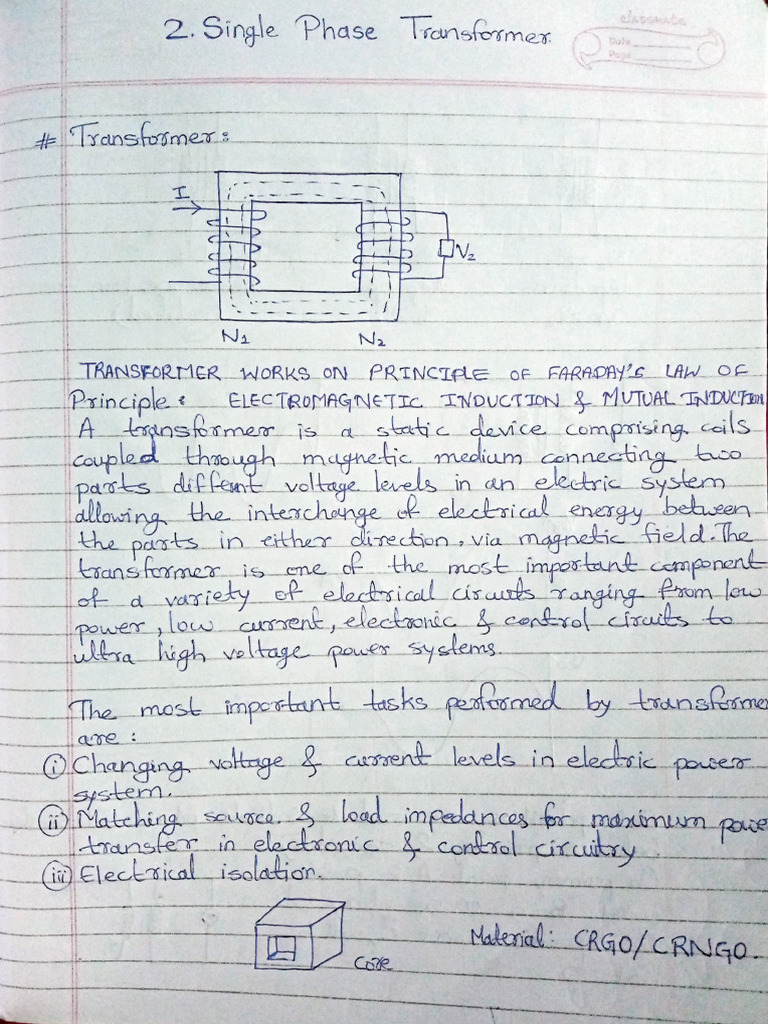 classmate
Date
Page
2. Single Phase Transformer.
# Transformer:
I
V2
N1 N2
TRANSFORMER WORKS ON PRINCIPLE OF FARADAY'S LAW OF
Principle: ELECTROMAGNETIC INDUCTION & MUTUAL INDUCTION
A transformer is a static device comprising coils
coupled through magnetic medium connecting two
parts different voltage levels in an electric system
allowing the interchange of electrical energy between
the parts in either direction, via magnetic field. The
transformer is one of the most important component
of a variety of electrical circuits ranging from low
power, low current, electronic & control circuits to
ultra high voltage power systems.
The most important tasks performed by transforme
are:
(i) Changing voltage & current levels in electric power
system.
(ii) Matching source & load impedances for maximum powe
transfer in electronic & control circuitry.
(iii) Electrical isolation.
Material: CRGO/CRNGO.
Core